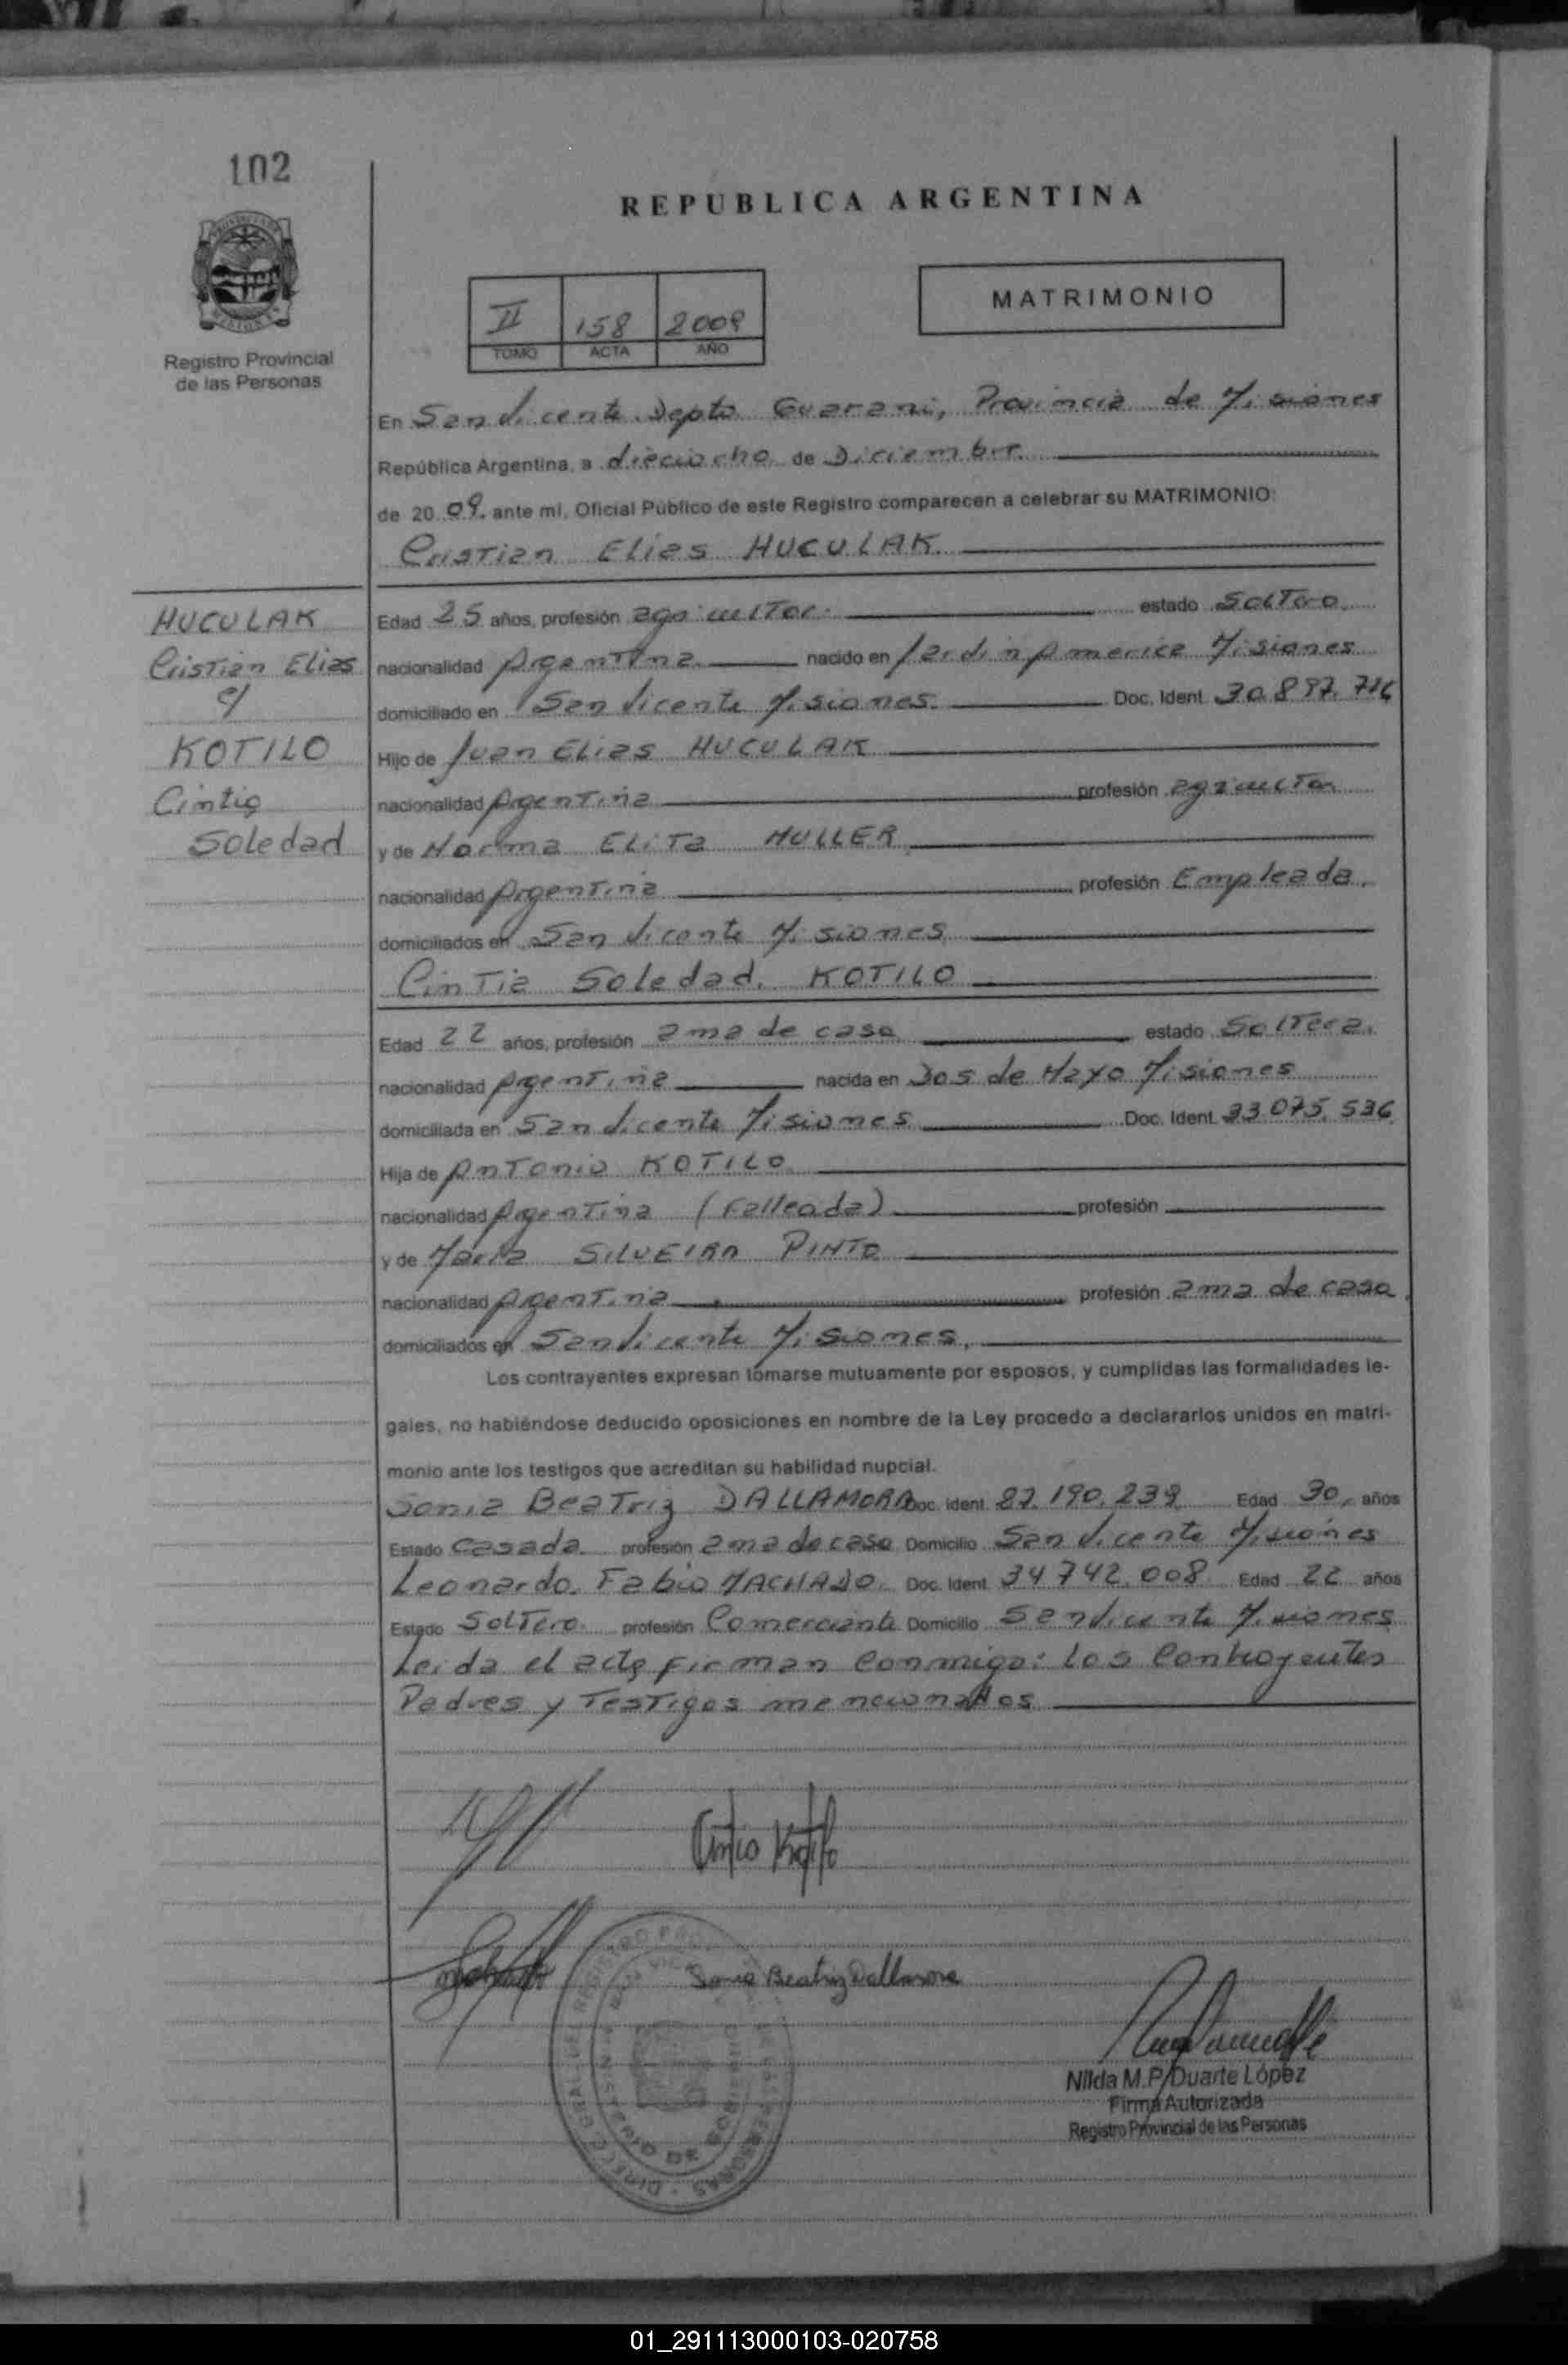 102
REPUBLICA ARGENTINA
Registro Provincial
de las Personas
II 158 2009
TOMO ACTA AÑO
MATRIMONIO
En San Vicente Depto Guarani, Provincia de Misiones
República Argentina, a dieciocho de Diciembre
de 20 09. ante mi, Oficial Público de este Registro comparecen a celebrar su MATRIMONIO:
Cristian Elias HUCULAK
HUCULAK
Cristian Elias
c/
KOTILO
Cintia
Soledad
Edad 25 años, profesión agricultor estado Soltero
nacionalidad Argentina nacido en Jardin America Misiones
domiciliado en San Vicente Misiones. Doc. Ident. 30.897.716
Hijo de Juan Elias HUCULAK
nacionalidad Argentina profesión agricultor
y de Norma Elita MULLER
nacionalidad Argentina profesión Empleada.
domiciliados en San Vicente Misiones
Cintia Soledad. KOTILO
Edad 22 años, profesión ama de casa estado Soltera.
nacionalidad Argentina nacida en Dos de Mayo Misiones
domiciliada en San Vicente Misiones Doc. Ident. 33.075.536
Hija de Antonio KOTILO
nacionalidad Argentina (Fallecida) profesión
y de Maria SILVEIRA PINTO
nacionalidad Argentina profesión ama de casa
domiciliados en San Vicente Misiones.
Los contrayentes expresan tomarse mutuamente por esposos, y cumplidas las formalidades le-
gales, no habiéndose deducido oposiciones en nombre de la Ley procedo a declararlos unidos en matri-
monio ante los testigos que acreditan su habilidad nupcial.
Sonia Beatriz DALLAMORA Doc. Ident. 27.190.239 Edad 30, años
Estado Casada. profesión ama de casa Domicilio San Vicente Misiones
Leonardo. Fabio MACHADO. Doc. Ident. 34742.008 Edad 22 años
Estado Soltero. profesión Comerciante Domicilio San Vicente Misiones
Leida el acta firman conmigo: los Contrayentes
Padres y Testigos mencionados
Cintia Kotilo
Sonia Beatriz Dallamora
Nilda M.P. Duarte López
Firma Autorizada
Registro Provincial de las Personas
01_291113000103-020758